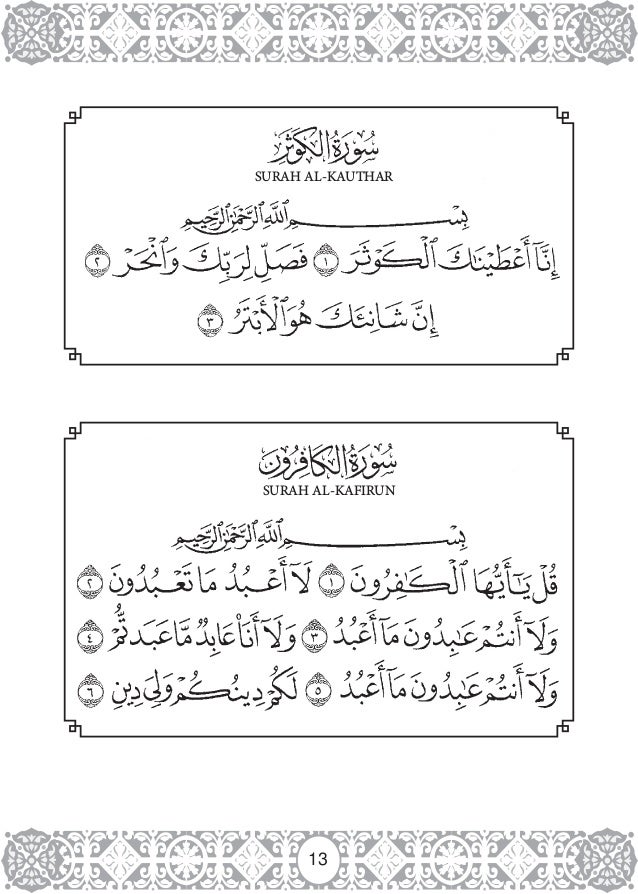 سُورَةُ الْكَوْثَرِ
SURAH AL-KAUTHAR
بِسْمِ ٱللَّهِ ٱلرَّحْمَٰنِ ٱلرَّحِيمِ
إِنَّآ أَعْطَيْنَٰكَ ٱلْكَوْثَرَ ١ فَصَلِّ لِرَبِّكَ وَٱنْحَرْ ٢
إِنَّ شَانِئَكَ هُوَ ٱلْأَبْتَرُ ٣
سُورَةُ الْكَافِرُونَ
SURAH AL-KAFIRUN
بِسْمِ ٱللَّهِ ٱلرَّحْمَٰنِ ٱلرَّحِيمِ
قُلْ يَٰٓأَيُّهَا ٱلْكَٰفِرُونَ ١ لَآ أَعْبُدُ مَا تَعْبُدُونَ ٢
وَلَآ أَنتُمْ عَٰبِدُونَ مَآ أَعْبُدُ ٣ وَلَآ أَنَا۠ عَابِدٌ مَّا عَبَدتُّمْ ٤
وَلَآ أَنتُمْ عَٰبِدُونَ مَآ أَعْبُدُ ٥ لَكُمْ دِينُكُمْ وَلِىَ دِينِ ٦
13